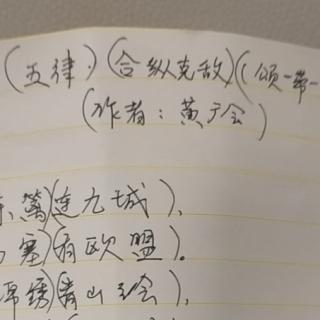 (五律·)(合纵克敌)(颂一带一
(作者:黄子会)
篱)(连九城),
塞)(有欧盟)。
锦绣)(青山绘),